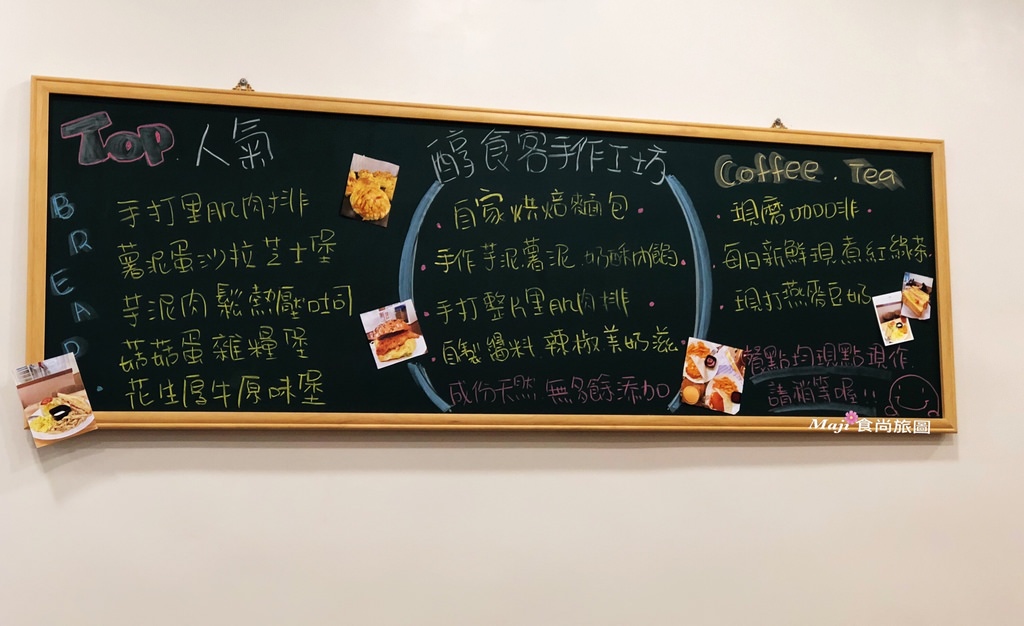 Top 人氣
BREAD
手打里肌肉排
薯泥蛋沙拉芝士堡
芋泥肉鬆熱壓吐司
菇菇蛋雜糧堡
花生厚牛原味堡
醇食客手作工坊
自家烘焙麵包
手作芋泥.薯泥.奶酥內餡
手打整片里肌肉排
自製醬料.辣椒美奶滋
成份天然.無多餘添加
Coffee . Tea
現磨咖啡
每日新鮮現煮紅綠茶
現打燕麥豆奶
餐點均現點現作
請稍等喔!!
Maji 食尚旅圖